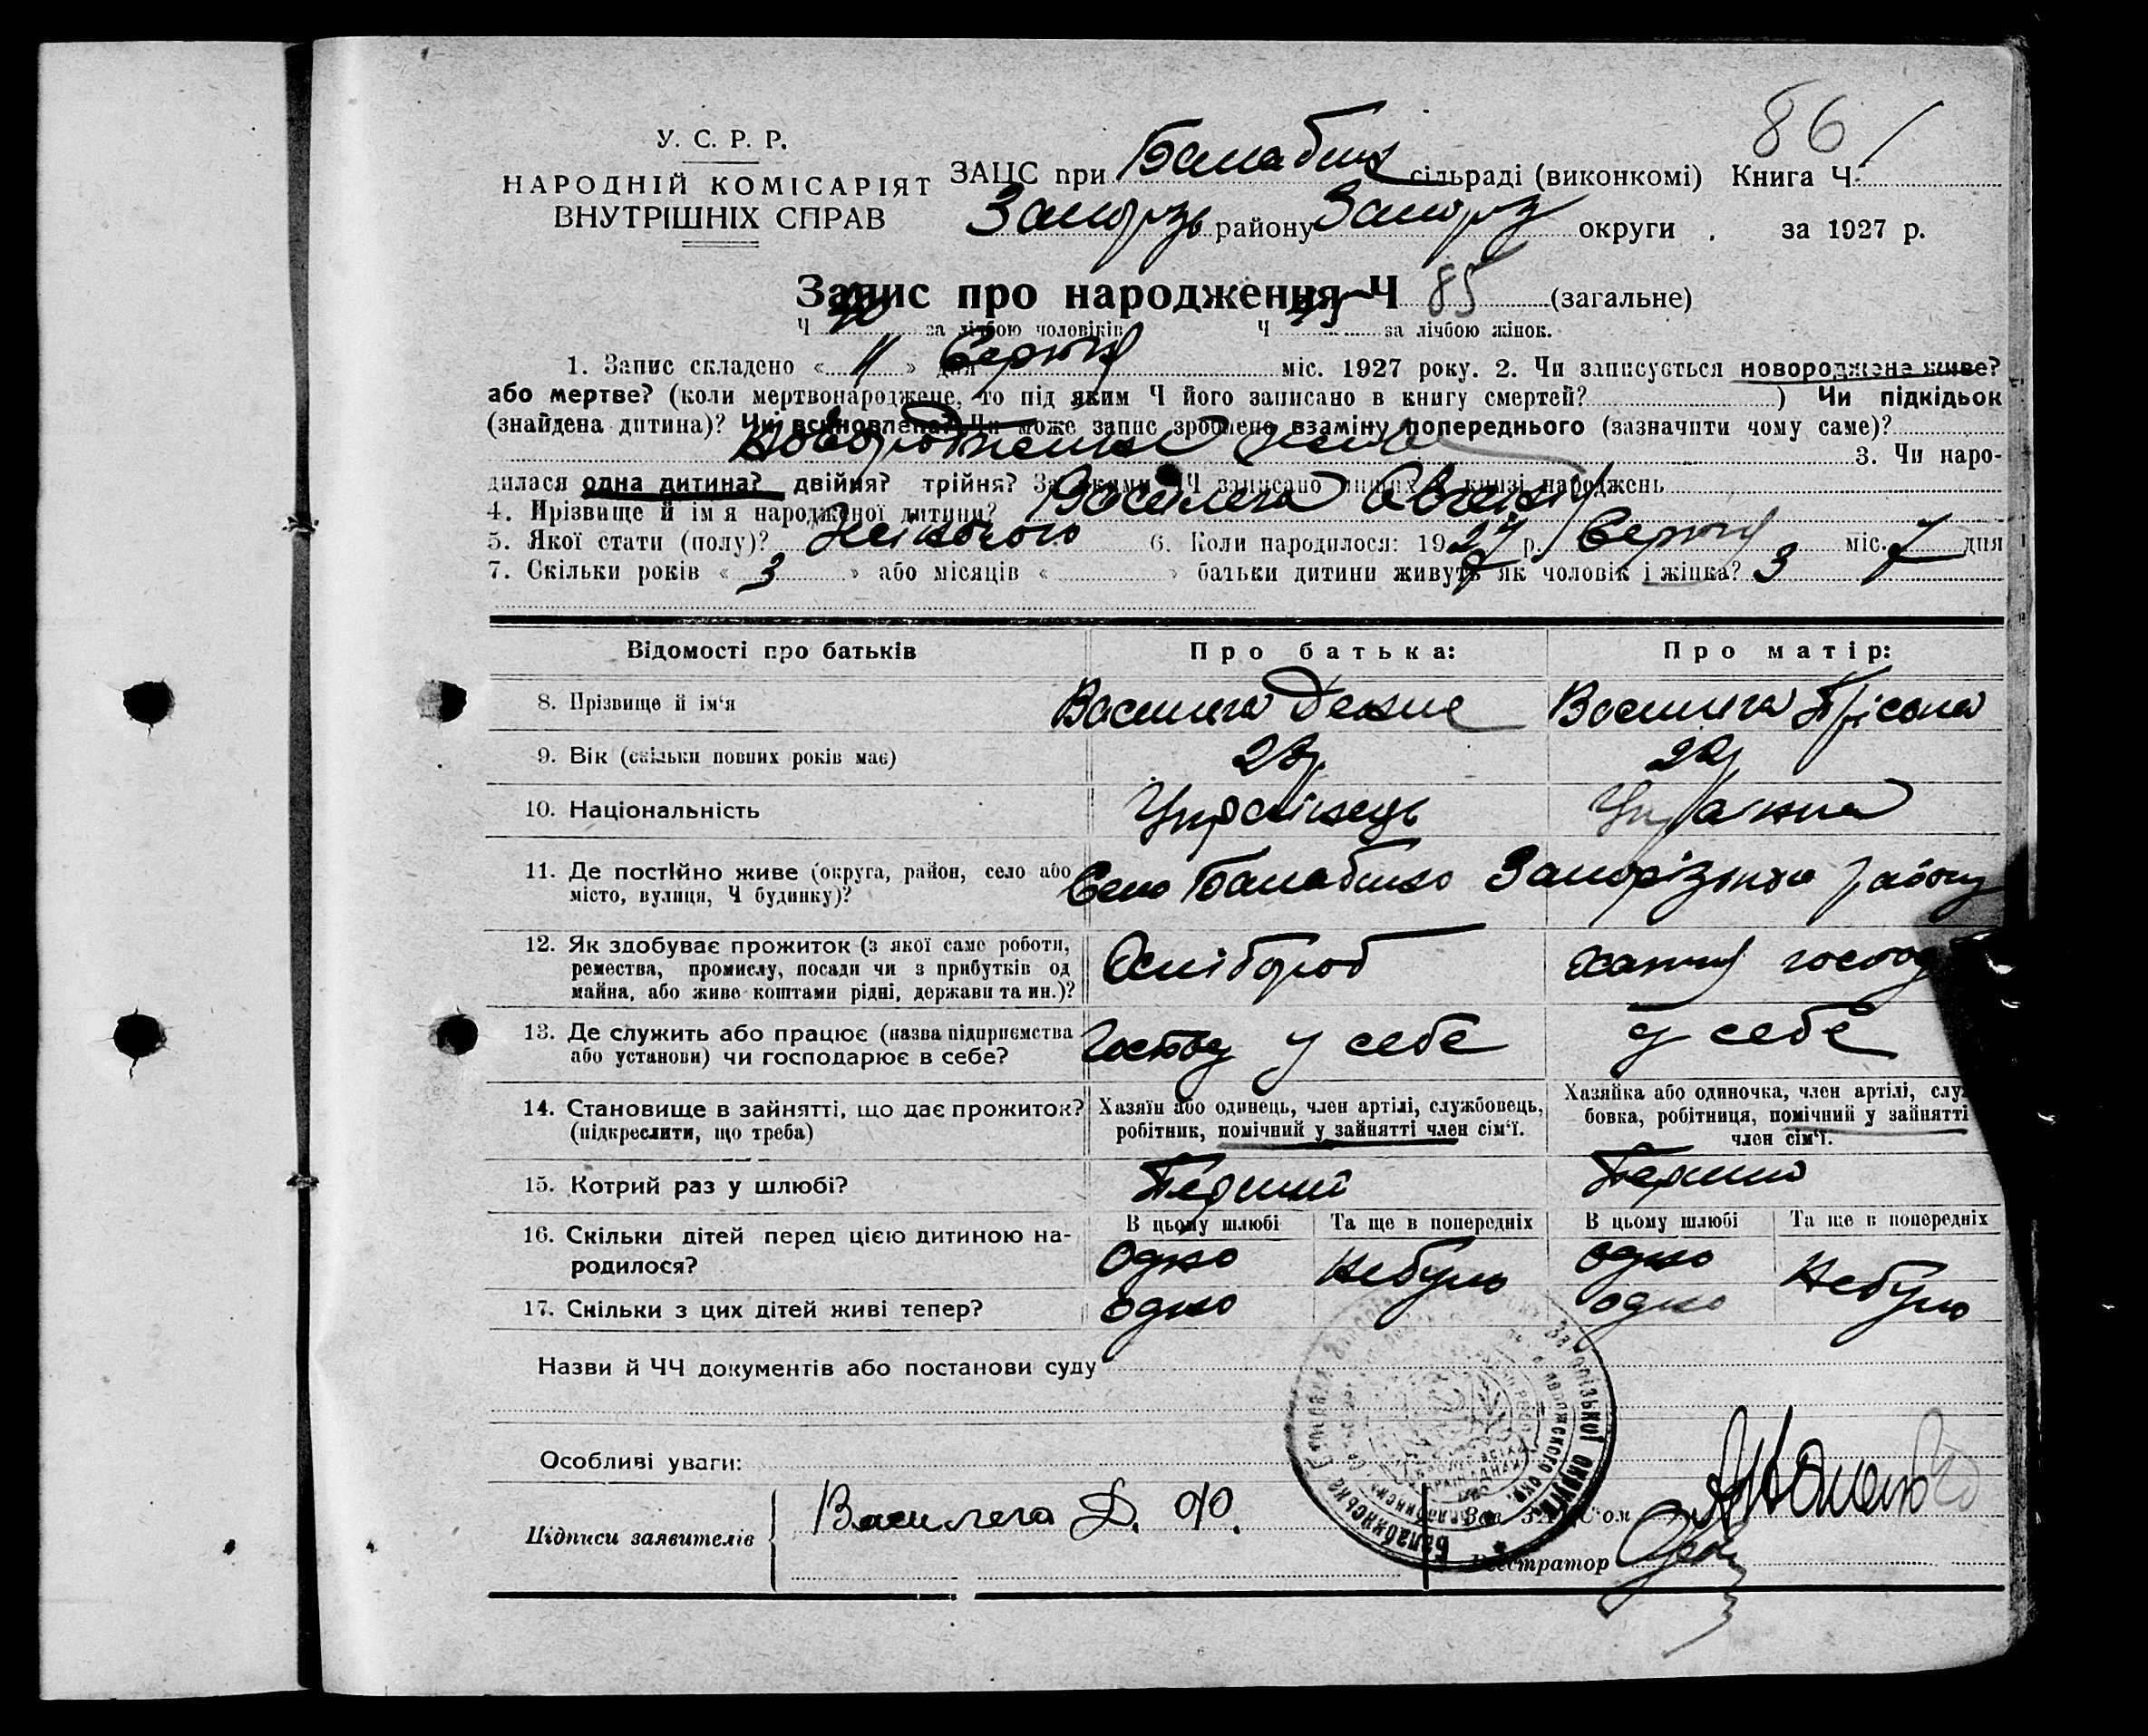 86
У. С. Р. Р.
НАРОДНІЙ КОМІСАРІЯТ
ВНУТРІШНІХ СПРАВ
ЗАЦС при Балабин сільраді (виконкомі) Книга Ч.
Запорізь району Запоріз округи . за 1927 р.
Запис про народження Ч 85 (загальне)
Ч 40 за лічбою чоловіків Ч 45 за лічбою жінок.
1. Запис складено « 11 » дня Серпня міс. 1927 року. 2. Чи записується новороджене живе?
або мертве? (коли мертвонароджене, то під яким Ч його записано в книгу смертей? ) Чи підкідьок
(знайдена дитина)? Чи всиновлена? Чи може запис зроблено взаміну попереднього (зазначити чому саме)?
новородженна жива
3. Чи наро-
дилася одна дитина? двійня? трійня? За якими ЧЧ записано інших в книзі народжень
4. Прізвище й ім'я народженої дитини? Василега
5. Якої стати (полу)? Жіночого 6. Коли народилося: 1927 р. Серпня 3 міс. 7 дня
7. Скільки років « 3 » або місяців « » батьки дитини живуть як чоловік і жінка? 3
Відомості про батьків Про батька: Про матір:
8. Прізвище й ім'я Василега Денис Василега
9. Вік (скільки повних років має)
10. Національність Українець Українка
11. Де постійно живе (округа, район, село або
місто, вулиця, Ч будинку)? Село Балабино Запорізького району
12. Як здобуває прожиток (з якої саме роботи,
ремества, промислу, посади чи з прибутків од
майна, або живе коштами рідні, держави та ин.)? Хлібороб хатня господ
13. Де служить або працює (назва підприємства
або установи) чи господарює в себе? у себе у себе
14. Становище в зайнятті, що дає прожиток?
(підкреслити, що треба)
Хазяїн або одинець, член артілі, службовець,
робітник, помічний у зайнятті член сім'ї.
Хазяйка або одиночка, член артілі, служ
бовка, робітниця, помічний у зайнятті
член сім'ї.
15. Котрий раз у шлюбі? Перший Перший
В цьому шлюбі Та ще в попередніх В цьому шлюбі Та ще в попередніх
16. Скільки дітей перед цією дитиною на-
родилося? одно небуло одно небуло
17. Скільки з цих дітей живі тепер? одно одно
Назви й ЧЧ документів або постанови суду
Особливі уваги:
Підписи заявителів Василега Д. Ф.
Зав. ЗАЦС'ом
Реєстратор